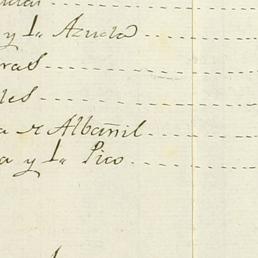 y 1a Azuela
ras
les
a de Albañil
a y 1a Pico